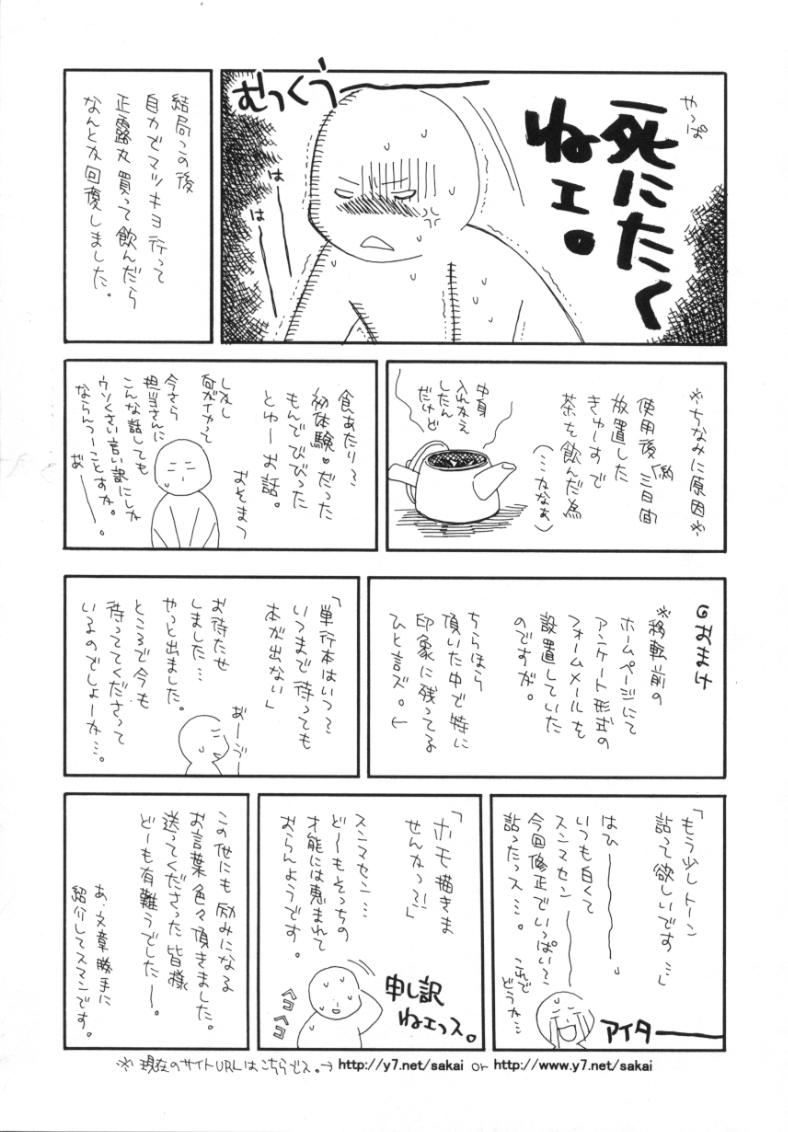 やっぱ
死にたく
ねエ。
むっくうー
はー
はー
結局この後
自力でマツキヨ行って
正露丸買って飲んだら
なんとか回復しました。
※ちなみに原因※
使用後(約三日間
放置した
きゅーすで
茶を飲んだ為
中身
入れかえ
したん
だけど
食あたり〜
初体験♥だった
もんでびびった
とゆーお話。
おそまつ
しかし
何がイカって
今さら
担当さんに
こんな話しても
ウソくさい言い訳にしか
ならんつーことすか。
おーー。
◎おまけ
※移転前の
ホームページにて
アンケート形式の
フォームメールを
設置していた
のですが。
ちらほら
頂いた中で特に
印象に残ってる
ひと言ズ。↓
「単行本はいつ〜
いつまで待っても
本が出ない」
お待たせ
しました…
やっと出ました。
ところで今も
待っててくださって
いるのでしょーか…。
おーうー
「もう少しトーン
貼って欲しいです…」
はひーーー。
いつも白くて
スンマセンーー
今回修正でいっぱい〜
貼ったっス…。
これで
どうか…
アイターー
「ホモ描きま
せんかっ?!」
スンマセン…
ど〜もそっちの
才能には恵まれて
おらんようです。
申し訳
ねエっス。
ペコペコ
この他にも励みになる
お言葉色々頂きました。
送ってくださった皆様
どーも有難うでしたー。
あ、文章勝手に
紹介してスマンです。
※現在のサイトURLはこちらでス。→ http://y7.net/sakai or http://www.y7.net/sakai